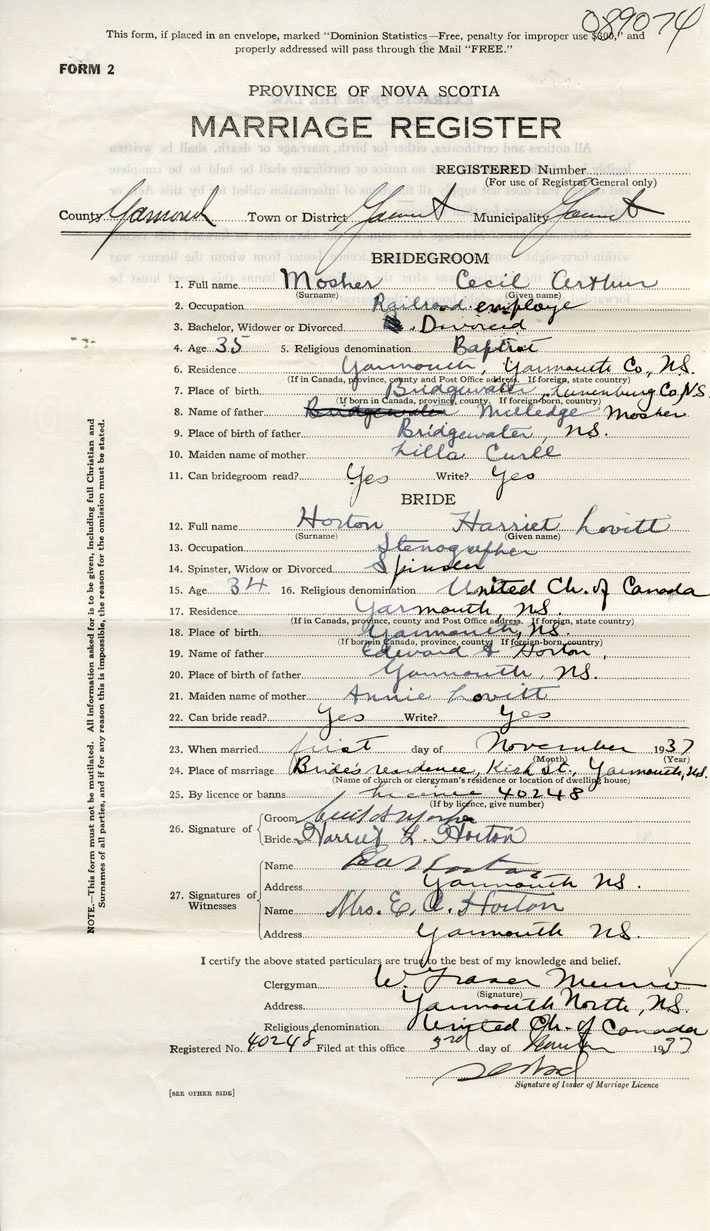 089074
This form, if placed in an envelope, marked "Dominion Statistics—Free, penalty for improper use $300," and
properly addressed will pass through the Mail "FREE."
FORM 2
PROVINCE OF NOVA SCOTIA
MARRIAGE REGISTER
REGISTERED Number
(For use of Registrar General only)
County Yarmouth Town or District Yarmouth Municipality Yarmouth
BRIDEGROOM
1. Full name Mosher Cecil Arthur
(Surname) (Given name)
2. Occupation Railroad employe
3. Bachelor, Widower or Divorced Divorced
4. Age 35 5. Religious denomination Baptist
6. Residence Yarmouth, Yarmouth Co., N.S.
(If in Canada, province, county and Post Office address. If foreign, state country)
7. Place of birth Bridgewater, Lunenburg Co. N.S.
(If born in Canada, province, county. If foreign-born, country)
8. Name of father Bridgewater Milledge Mosher
9. Place of birth of father Bridgewater, N.S.
10. Maiden name of mother Lilla Curll
11. Can bridegroom read? Yes Write? Yes
BRIDE
12. Full name Horton Harriet Lovitt
(Surname) (Given name)
13. Occupation Stenographer
14. Spinster, Widow or Divorced Spinster
15. Age 34 16. Religious denomination United Ch. of Canada
17. Residence Yarmouth, N.S.
(If in Canada, province, county and Post Office address. If foreign, state country)
18. Place of birth Yarmouth, N.S.
(If born in Canada, province, county. If foreign-born, country)
19. Name of father Edward A Horton,
20. Place of birth of father Yarmouth, N.S.
21. Maiden name of mother Annie Lovitt
22. Can bride read? Yes Write? Yes
23. When married first day of November 1937
(Month) (Year)
24. Place of marriage Bride's residence, Kirk St., Yarmouth, N.S.
(Name of church or clergyman's residence or location of dwelling house)
25. By licence or banns license 40248
(If by licence, give number)
26. Signature of
Groom Cecil A Mosher
Bride Harriet L. Horton
27. Signatures of Witnesses
Name E A Horton
Address Yarmouth N.S.
Name Mrs. E. A. Horton
Address Yarmouth N.S.
I certify the above stated particulars are true to the best of my knowledge and belief.
Clergyman W. Fraser Munro
(Signature)
Address Yarmouth North, N.S.
Religious denomination United Ch. of Canada
Registered No. 40248 Filed at this office 3rd day of 1937
Signature of Issuer of Marriage Licence
[SEE OTHER SIDE]
NOTE.—This form must not be mutilated. All information asked for is to be given, including full Christian and
Surnames of all parties, and if for any reason this is impossible, the reason for the omission must be stated.